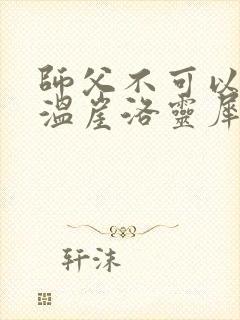 師父不可以
溫崖洛靈犀
轩沫